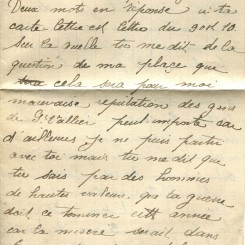 Deux mots en réponse à ta
carte lettre et lettre du 9 et 10.
Sur la quelle tu me dit de la
question de ma place que
cela sera pour moi
mauvaise réputation des gens
de St Vallier peut importe car
d'ailleurs je ne puis partir
avec toi mais tu me dit que
tu sais par des hommes
de hautes valeurs que la guerre
doit ce terminer cette année
car la misère serait dans